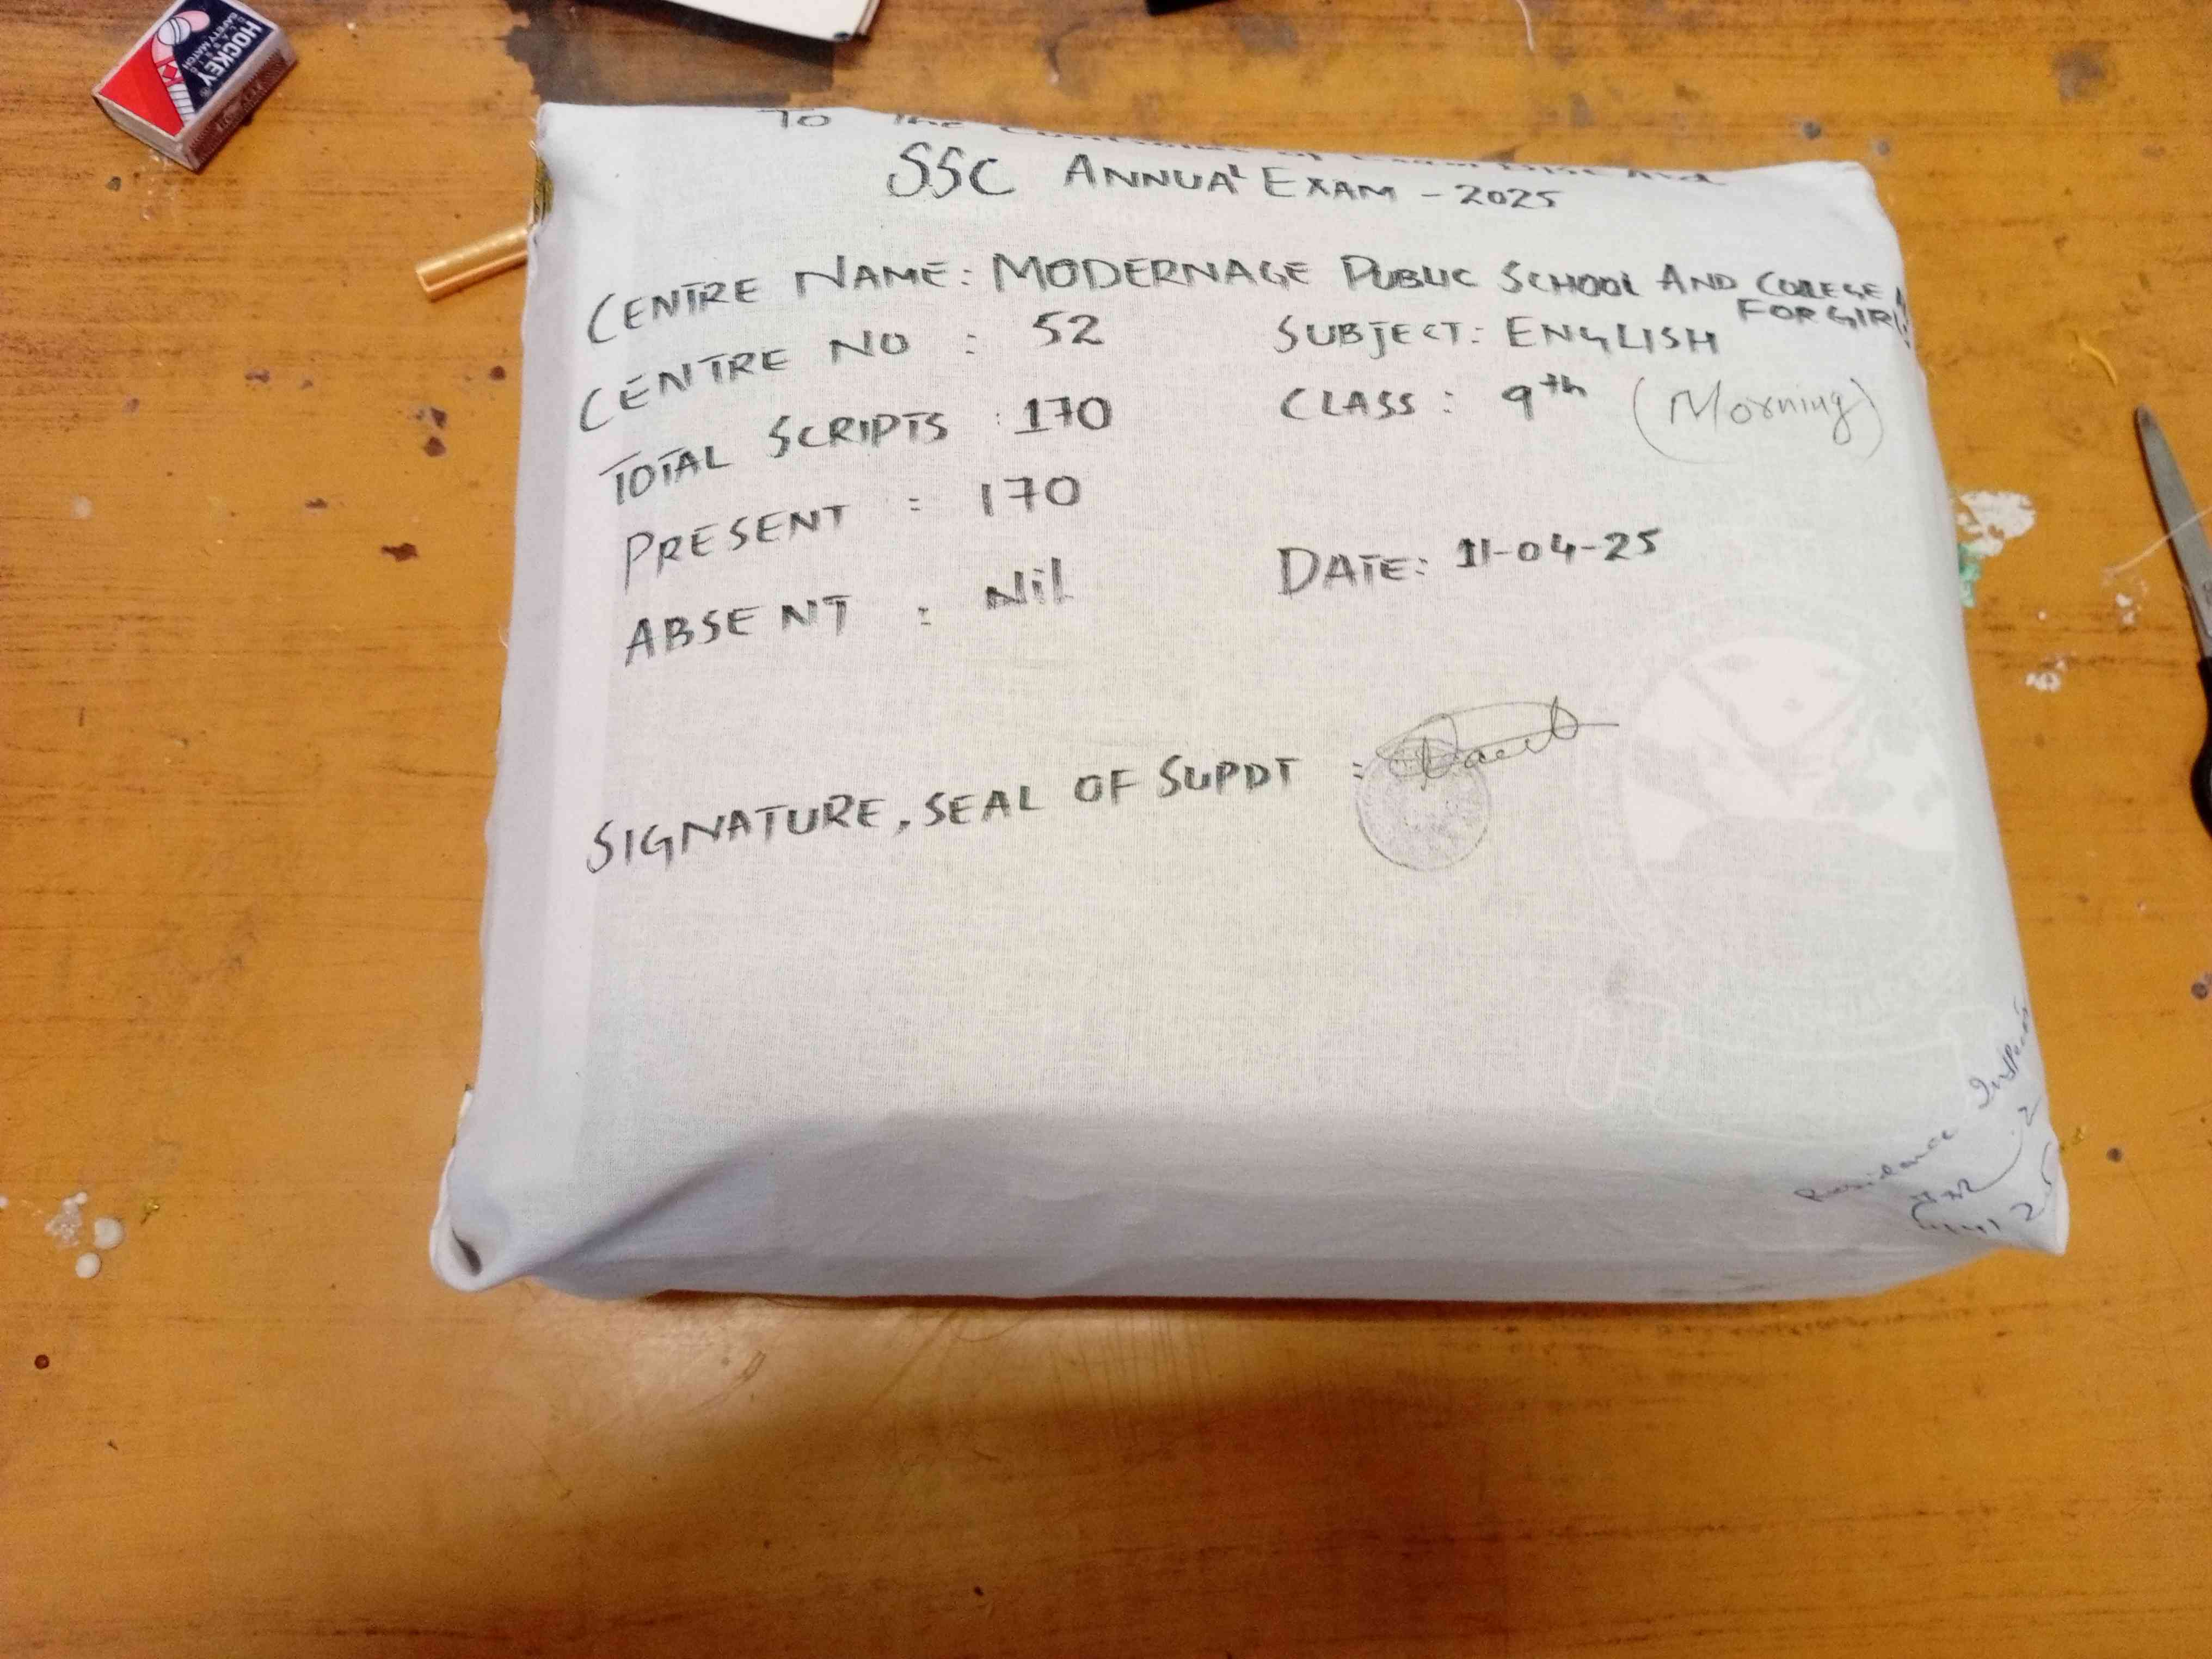 HOCKEY
SAFETY MATCH
To The Controller of Exam
SSC ANNUAL EXAM - 2025
CENTRE NAME: MODERNAGE PUBLIC SCHOOL AND COLLEGE
FOR GIRLS
CENTRE NO : 52 SUBJECT: ENGLISH
TOTAL SCRIPTS : 170 CLASS: 9th (Morning)
PRESENT : 170
ABSENT : Nil DATE: 11-04-25
SIGNATURE, SEAL OF SUPDT :